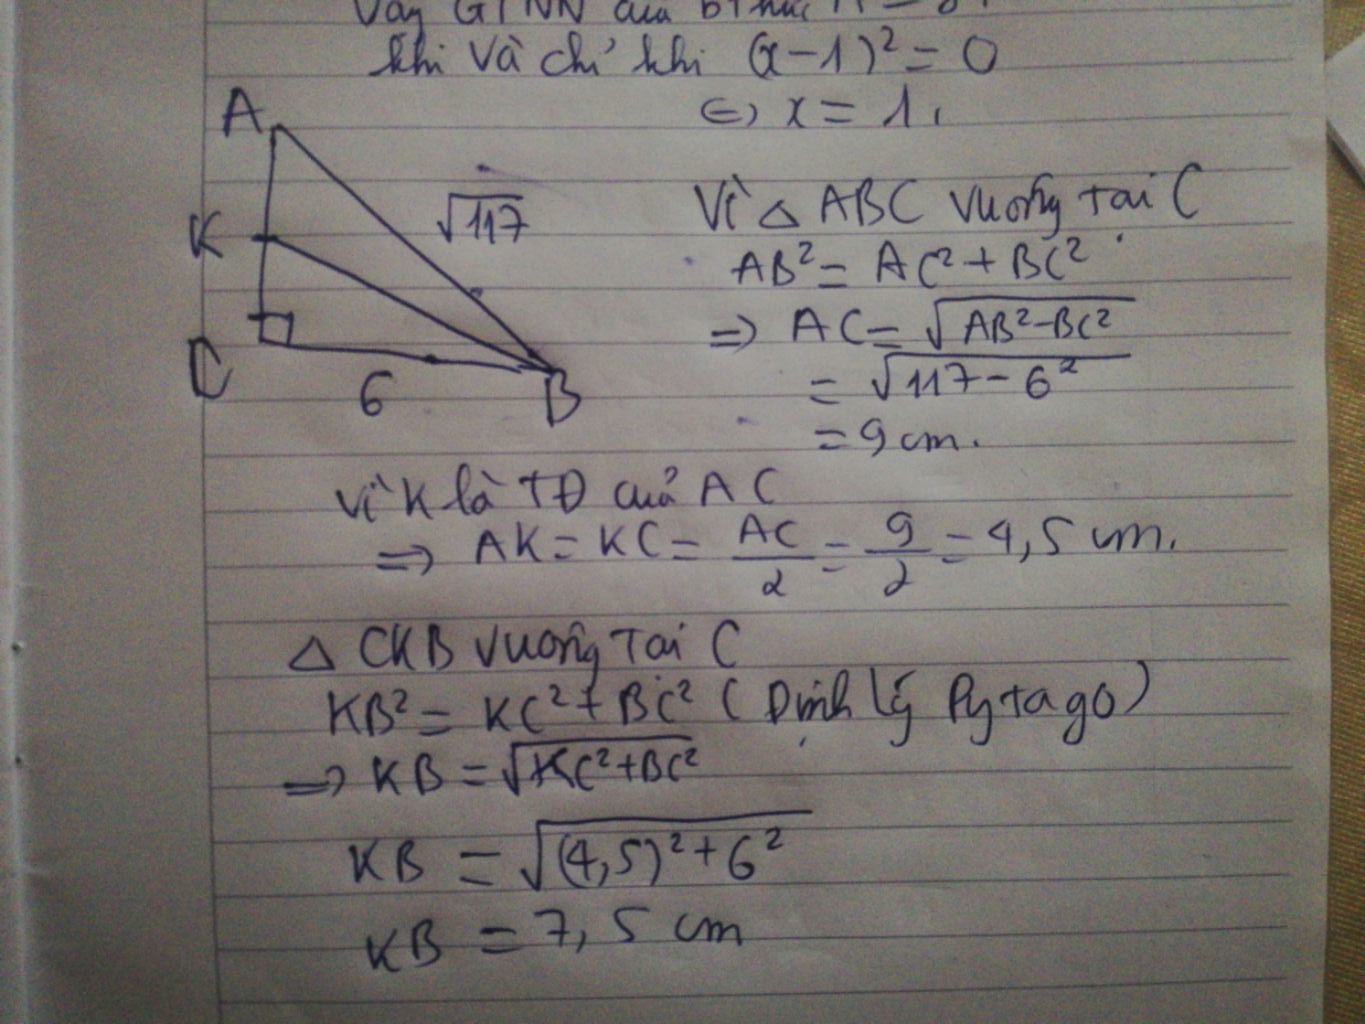 Vậy GTNN của bthức A =
khi và chỉ khi (x-1)² = 0
⇔ x = 1.
A
K
C
B
√117
6
Vì △ ABC vuông tại C
AB² = AC² + BC²
⇒ AC = √AB²-BC²
= √117 - 6²
= 9 cm.
Vì K là TĐ của AC
⇒ AK = KC = AC/2 = 9/2 = 4,5 cm.
△ CKB vuông tại C
KB² = KC² + BC² (Định lý Pytago)
⇒ KB = √KC²+BC²
KB = √(4,5)² + 6²
KB = 7,5 cm